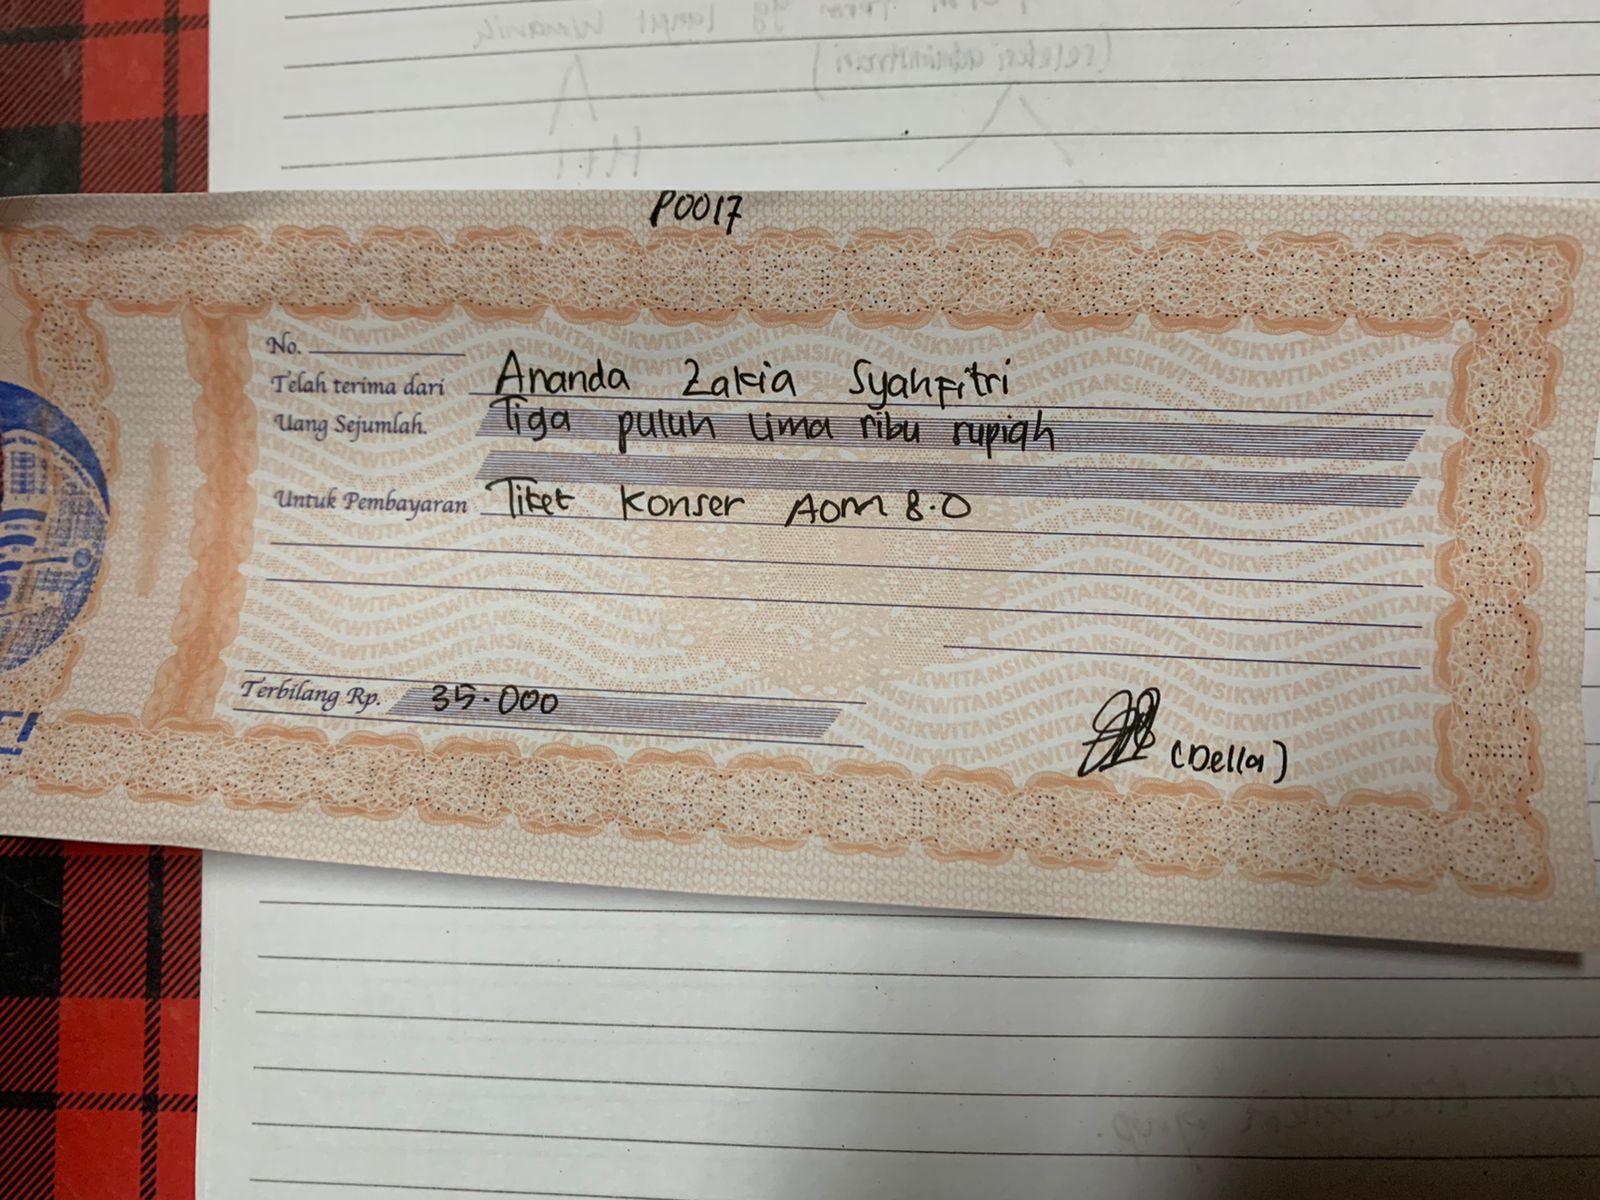 P0017
No.
Telah terima dari Ananda Zakia Syahfitri
Uang Sejumlah. Tiga puluh lima ribu rupiah
Untuk Pembayaran Tiket Konser AOM 8.0
Terbilang Rp. 35.000
(Della)